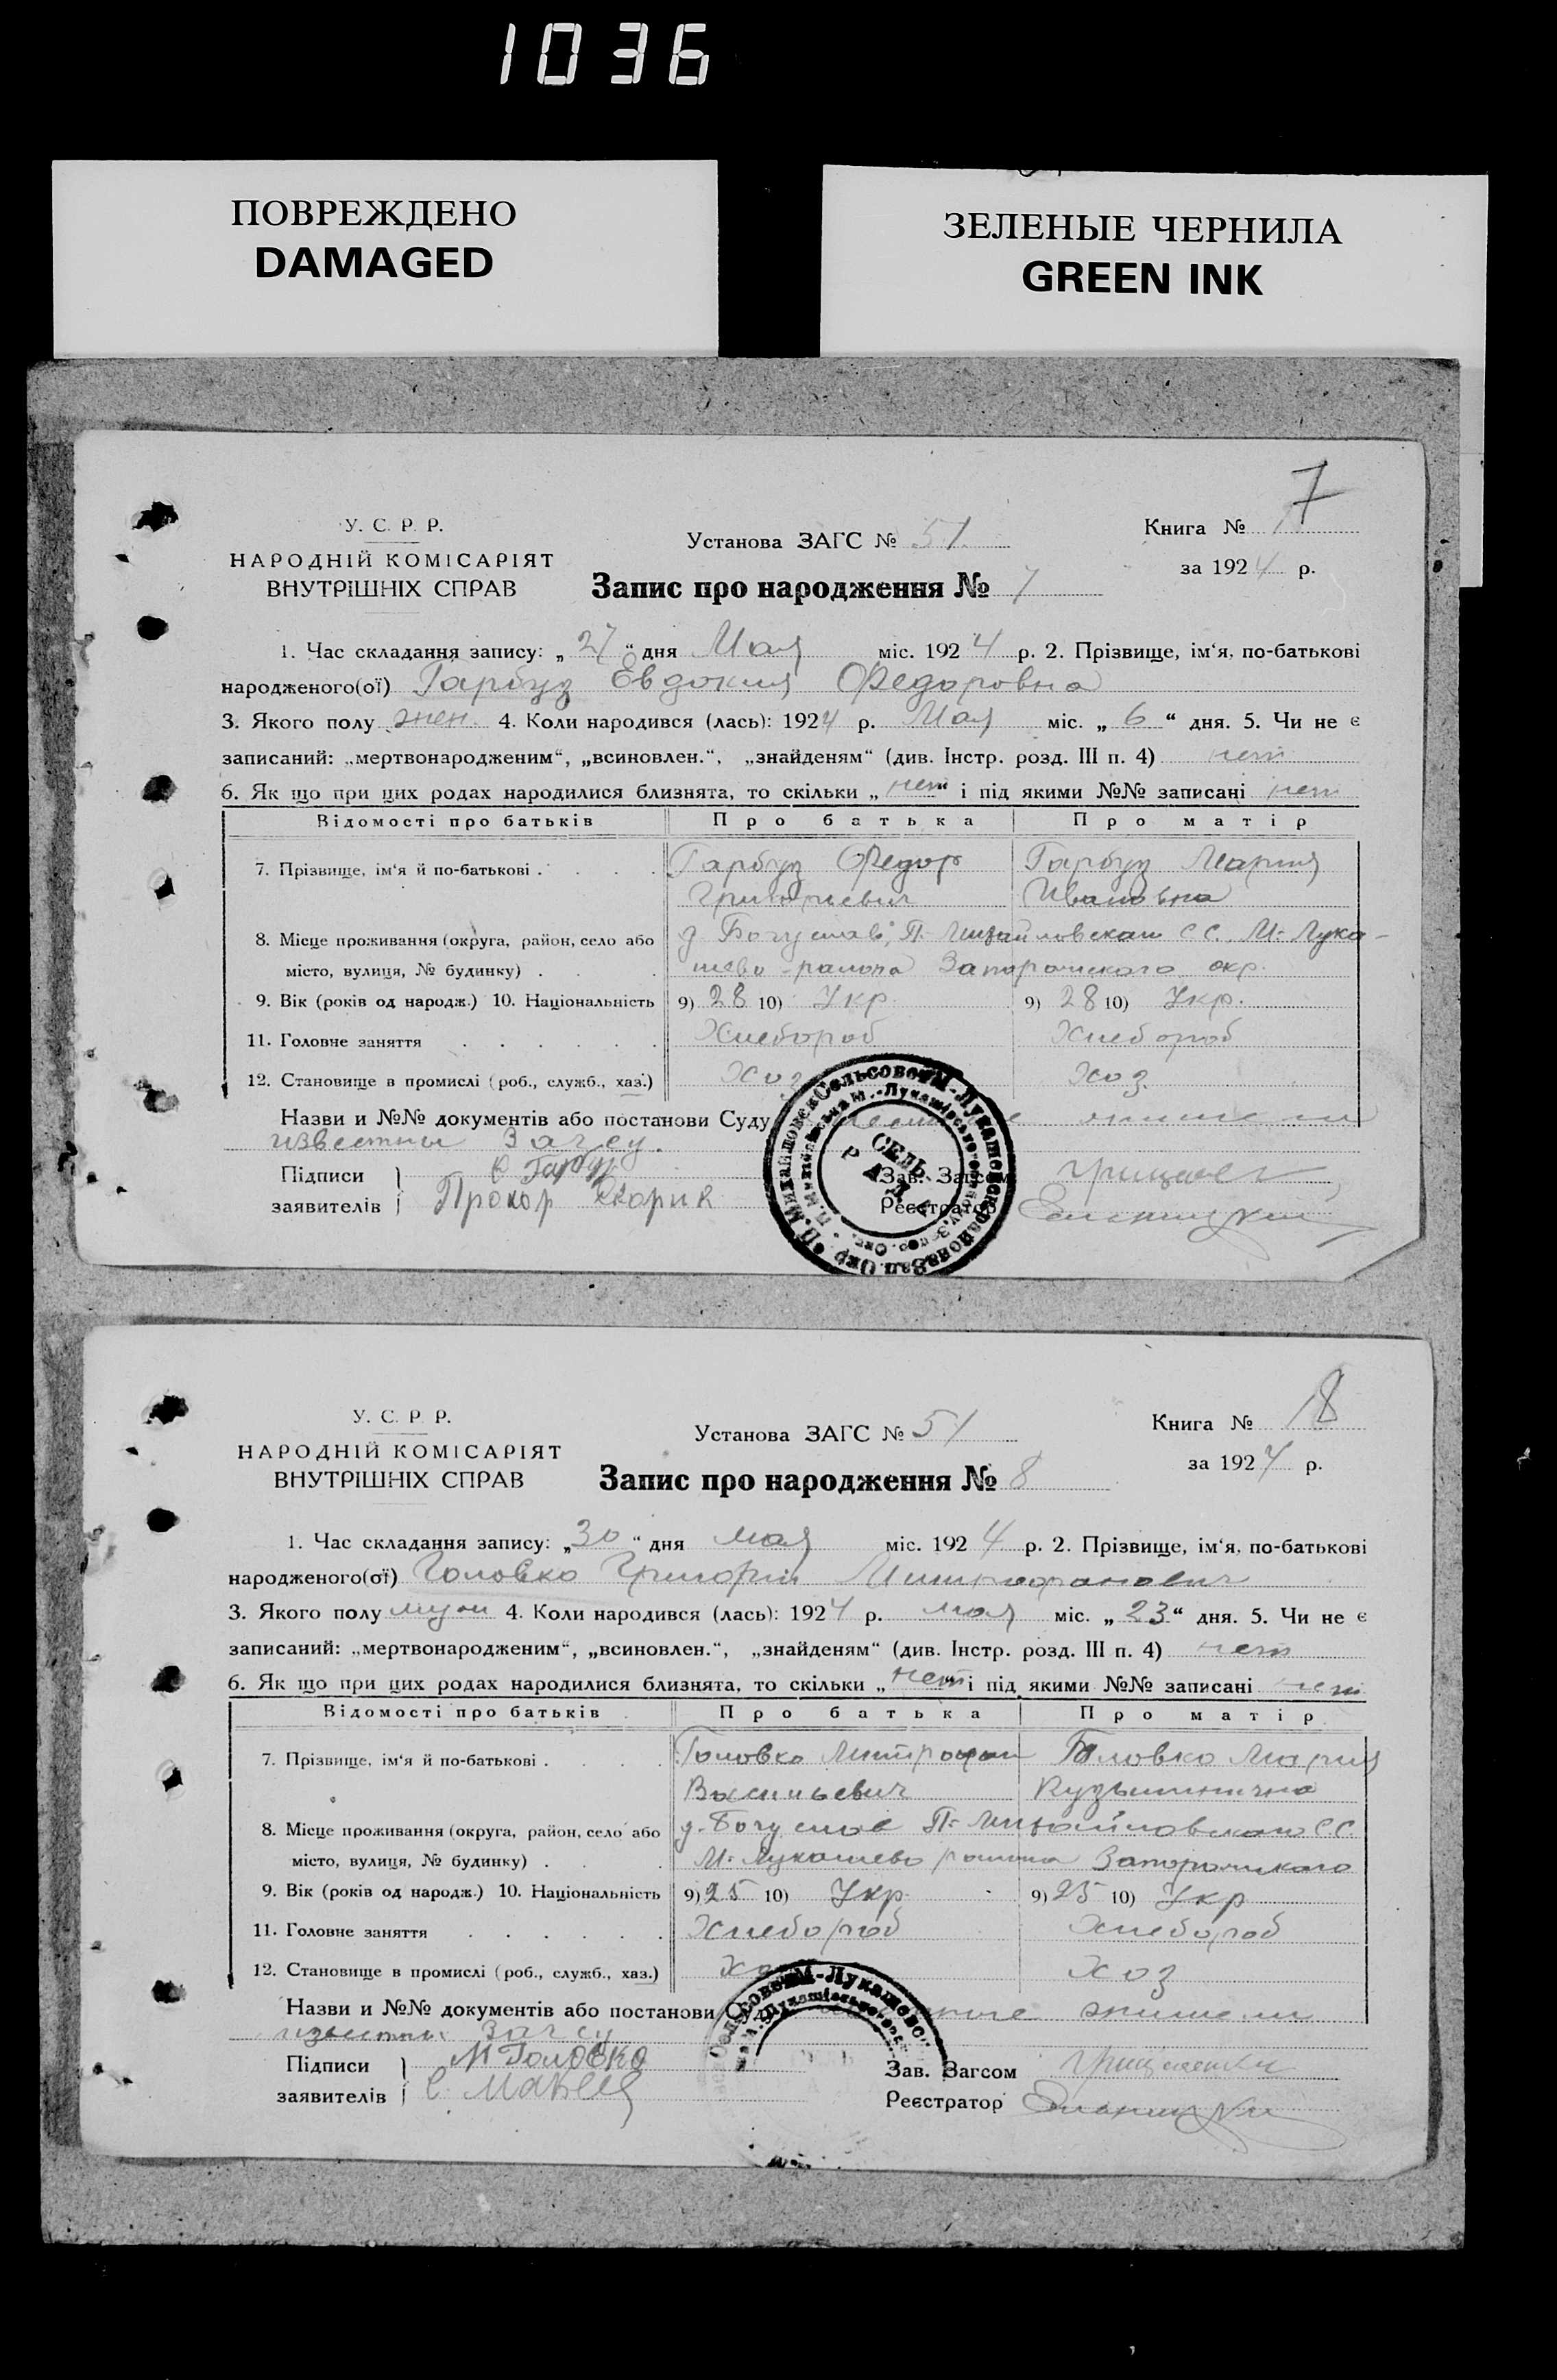 1036
ПОВРЕЖДЕНО
DAMAGED
ЗЕЛЕНЫЕ ЧЕРНИЛА
GREEN INK
7
У. С. Р. Р.
НАРОДНІЙ КОМІСАРІЯТ
ВНУТРІШНІХ СПРАВ
Установа ЗАГС № 51
Книга №
за 1924 р.
Запис про народження № 7
1. Час складання запису: „27“ дня Мая міс. 1924 р. 2. Прізвище, ім‘я, по-батькові
народженого(ої) Гарбуз Евдокия Федоровна
3. Якого полу жен. 4. Коли народився (лась): 1924 р. Мая міс. „6“ дня. 5. Чи не є
записаний: „мертвонародженим“, „всиновлен.“, „знайденям“ (див. Інстр. розд. III п. 4) нет
6. Як що при цих родах народилися близнята, то скільки „нет“ і під якими №№ записані нет
Відомості про батьків Про батька Про матір
7. Прізвище, ім‘я й по-батькові . Гарбуз Федор Гарбуз Мария
Григорьевич Ивановна
8. Місце проживання (округа, район, село або д. Богуслав, П-Михайловского С.С. М-Лука-
місто, вулиця, № будинку) . шево района Запорожского окр.
9. Вік (років од народж.) 10. Національність 9) 28 10) Укр 9) 28 10) Укр.
11. Головне заняття Хлебороб Хлебороб
12. Становище в промислі (роб., служб., хаз.) Хоз Хоз
Назви и №№ документів або постанови Суду
известны Загсу.
Підписи Гарбуз Зав. Загсом
заявителів Прокор Реєстратор
СЕЛЬ
РАДА
18
У. С. Р. Р.
НАРОДНІЙ КОМІСАРІЯТ
ВНУТРІШНІХ СПРАВ
Установа ЗАГС № 51
Книга №
за 1924 р.
Запис про народження № 8
1. Час складання запису: „30“ дня мая міс. 1924 р. 2. Прізвище, ім‘я, по-батькові
народженого(ої) Головко Григорий Митрофанович
3. Якого полу муж 4. Коли народився (лась): 1924 р. мая міс. „23“ дня. 5. Чи не є
записаний: „мертвонародженим“, „всиновлен.“, „знайденям“ (див. Інстр. розд. III п. 4) нет
6. Як що при цих родах народилися близнята, то скільки „нет“ і під якими №№ записані нет
Відомості про батьків Про батька Про матір
7. Прізвище, ім‘я й по-батькові . Головко Митрофан Головко Мария
Васильевич Кузьминична
8. Місце проживання (округа, район, село або д. Богуслав П-Михайловского С.С.
місто, вулиця, № будинку) . М-Лукашево района Запорожского
9. Вік (років од народж.) 10. Національність 9) 25 10) Укр 9) 25 10) Укр
11. Головне заняття Хлебороб Хлебороб
12. Становище в промислі (роб., служб., хаз.) Хоз Хоз
Назви и №№ документів або постанови
известны Загсу
Підписи М Головко Зав. Загсом
заявителів Реєстратор